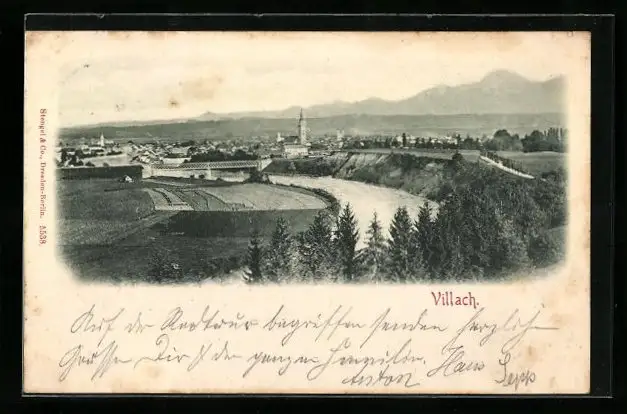 Stengel & Co., Dresden-Berlin. 5538.
Villach.
Auf der Radtour begriffen senden herzliche
Grüsse Dir & der ganzen Familie.
Anton Hans Sepp